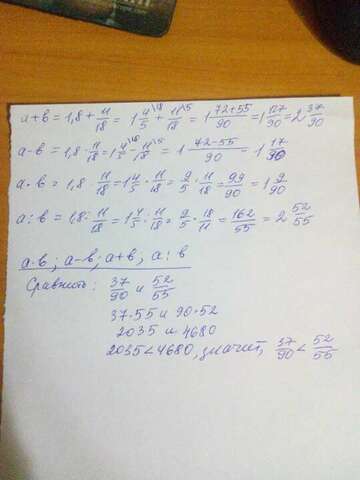 a+в = 1,8 + 11/18 = 1 4/5\18 + 11/18\5 = 1 72+55/90 = 1 127/90 = 2 37/90
a-в = 1,8 - 11/18 = 1 4/5\18 - 11/18\5 = 1 72-55/90 = 1 17/90
a·в = 1,8 · 11/18 = 1 4/5 · 11/18 = 9/5 · 11/18 = 99/90 = 1 9/90
a:в = 1,8 : 11/18 = 1 4/5 : 11/18 = 9/5 · 18/11 = 162/55 = 2 52/55
a·в ; a-в ; a+в ; a:в
Сравнить: 37/90 и 52/55
37·55 и 90·52
2035 и 4680
2035<4680, значит, 37/90 < 52/55